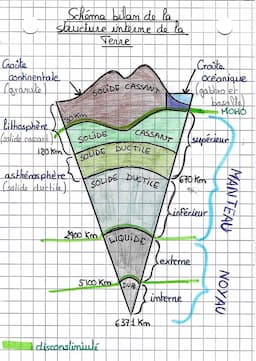 Schéma bilan de la
structure interne de la
Terre
Croûte
continentale
(granite)
Croûte
océanique
(gabbro et
basalte)
SOLIDE CASSANT
30 Km
MOHO
lithosphère
(solide cassant)
SOLIDE CASSANT
supérieur
120 Km
SOLIDE DUCTILE
asthénosphère
(solide ductile)
SOLIDE DUCTILE
670 Km
MANTEAU
inférieur
2900 Km
LIQUIDE
externe
NOYAU
5100 Km
interne
6371 Km
discontinuité